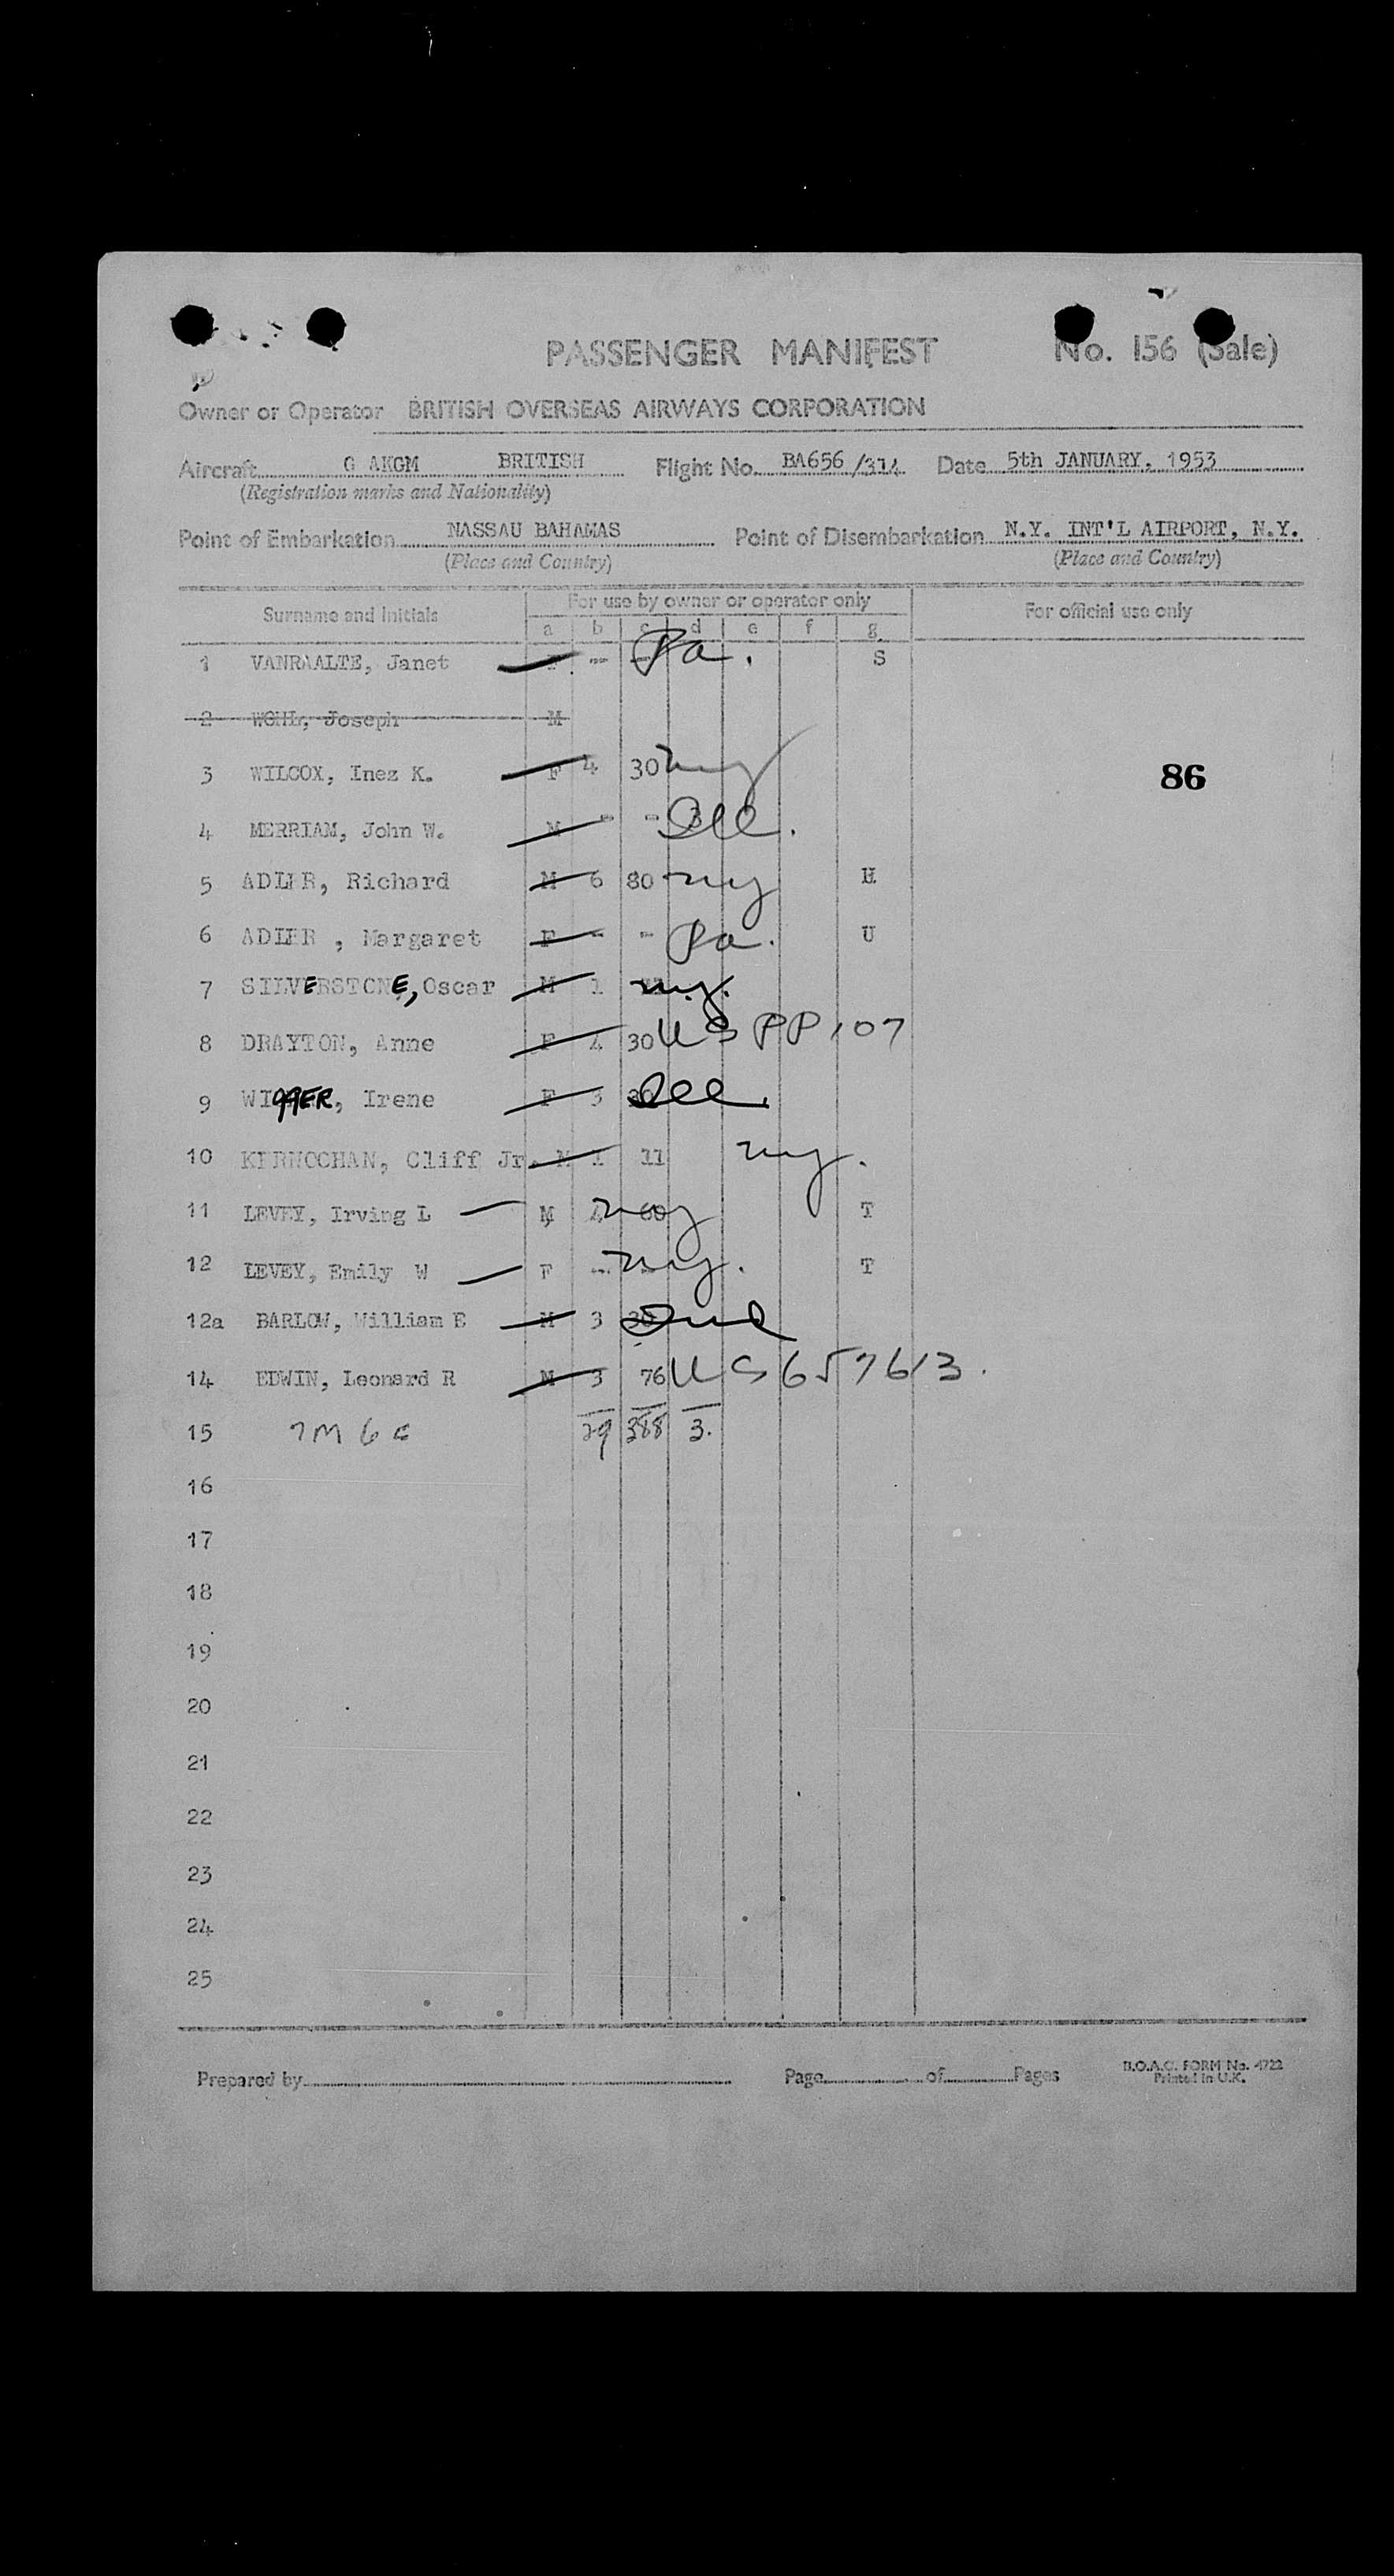 PASSENGER MANIFEST No. 156 (Sale)
Owner or Operator BRITISH OVERSEAS AIRWAYS CORPORATION
Aircraft G AKGM BRITISH Flight No. BA656/314 Date 5th JANUARY. 1953
(Registration marks and Nationality)
Point of Embarkation NASSAU BAHAMAS Point of Disembarkation N.Y. INT'L AIRPORT, N.Y.
(Place and Country) (Place and Country)
Surname and initials For use by owner or operator only For official use only
a b c d e f g
1 VANRAALTE, Janet F - - Pa. S
2 WOHL, Joseph M
3 WILCOX, Inez K. F 4 30 ny 86
4 MERRIAM, John W. M - - 3 Ill.
5 ADLER, Richard M 6 80 ny H
6 ADLER , Margaret F - - Pa. U
7 SILVERSTONE, Oscar M 1 ny.
8 DRAYTON, Anne F 4 30 US PP 107
9 WIGGER, Irene F 3 Ill.
10 KERNOCHAN, Cliff Jr. M 1 11 ny.
11 LEVEY, Irving L M 4 60 ny T
12 LEVEY, Emily W F - - ny. T
12a BARLOW, William E M 3 30 Ind
14 EDWIN, Leonard R M 3 76 US 657613.
15 7M 6F 29 388 3.
16
17
18
19
20
21
22
23
24
25
Prepared by Page of Pages B.O.A.C. FORM No. 4722
Printed in U.K.